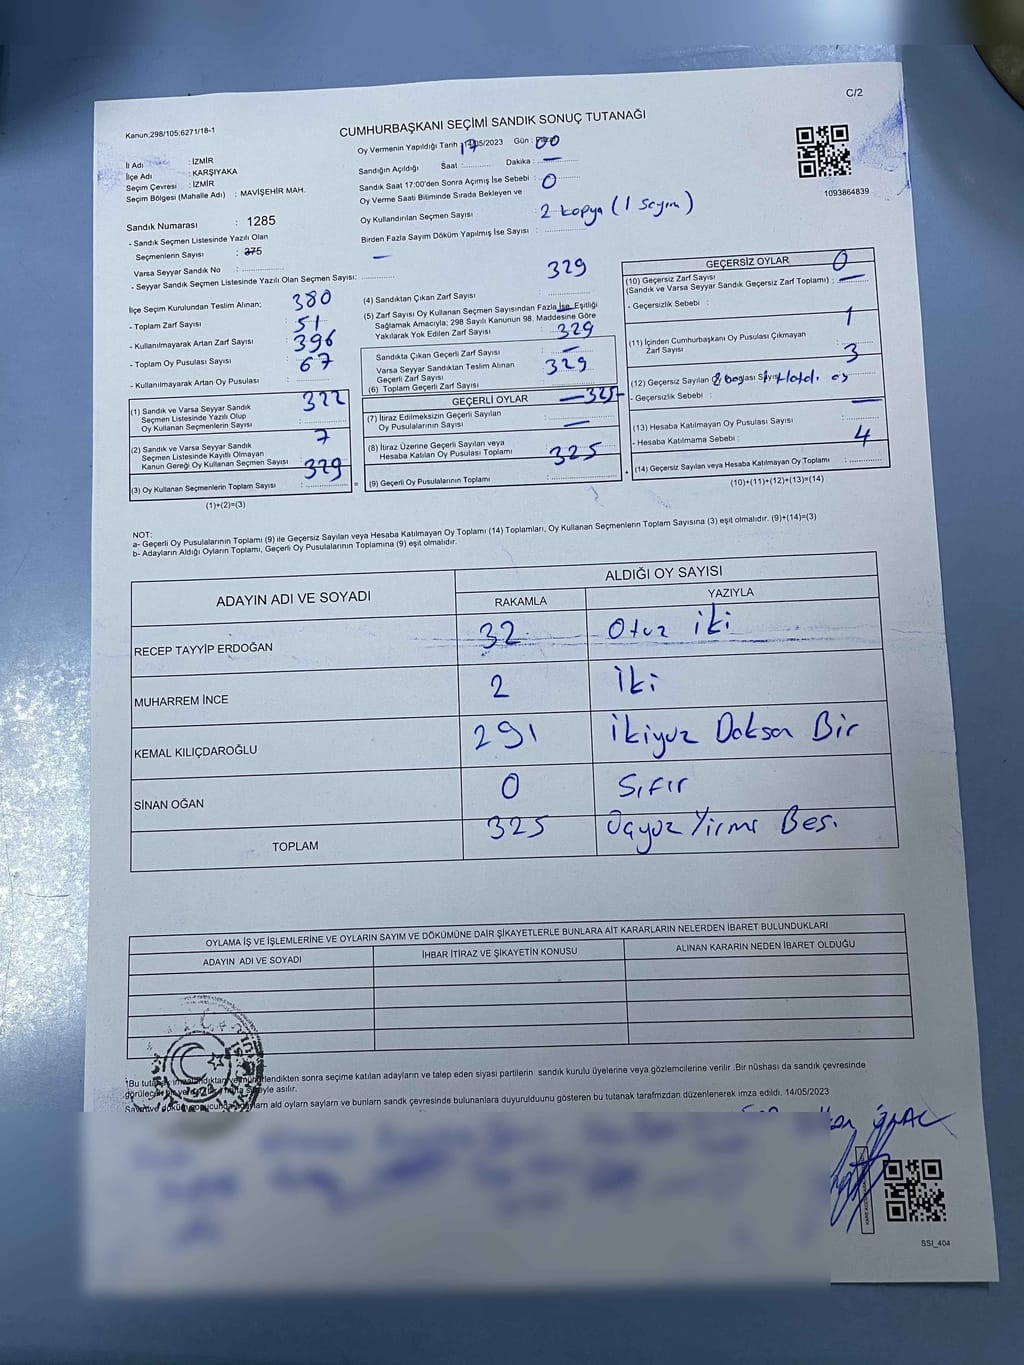 C/2
Kanun;298/105:6271/18-1
CUMHURBAŞKANI SEÇİMİ SANDIK SONUÇ TUTANAĞI
İl Adı : İZMİR
İlçe Adı : KARŞIYAKA
Seçim Çevresi : İZMİR
Seçim Bölgesi (Mahalle Adı) : MAVİŞEHİR MAH.
Sandık Numarası : 1285
- Sandık Seçmen Listesinde Yazılı Olan
Seçmenlerin Sayısı : 375
Varsa Seyyar Sandık No :
- Seyyar Sandık Seçmen Listesinde Yazılı Olan Seçmen Sayısı:
Oy Vermenin Yapıldığı Tarih 05/2023 Gün :
Sandığın Açıldığı Saat : Dakika :
Sandık Saat 17:00'den Sonra Açımış İse Sebebi :
Oy Verme Saati Bitiminde Sırada Bekleyen ve 0
Oy Kullandırılan Seçmen Sayısı 2 kopya (1 sayım)
Birden Fazla Sayım Döküm Yapılmış İse Sayısı :
1093864839
İlçe Seçim Kurulundan Teslim Alınan; 380
- Toplam Zarf Sayısı 51
- Kullanılmayarak Artan Zarf Sayısı 396
- Toplam Oy Pusulası Sayısı 67
- Kullanılmayarak Artan Oy Pusulası
(1) Sandık ve Varsa Seyyar Sandık 322
Seçmen Listesinde Yazılı Olup
Oy Kullanan Seçmenlerin Sayısı
(2) Sandık ve Varsa Seyyar Sandık 7
Seçmen Listesinde Kayıtlı Olmayan
Kanun Gereği Oy Kullanan Seçmen Sayısı
329
(3) Oy Kullanan Seçmenlerin Toplam Sayısı
(1)+(2)=(3)
329
(4) Sandıktan Çıkan Zarf Sayısı
(5) Zarf Sayısı Oy Kullanan Seçmen Sayısından Fazla İse, Eşitliği
Sağlamak Amacıyla; 298 Sayılı Kanunun 98. Maddesine Göre
Yakılarak Yok Edilen Zarf Sayısı 329
Sandıkta Çıkan Geçerli Zarf Sayısı
Varsa Seyyar Sandıktan Teslim Alınan
Geçerli Zarf Sayısı 329
(6) Toplam Geçerli Zarf Sayısı
GEÇERLİ OYLAR 325
(7) İtiraz Edilmeksizin Geçerli Sayılan
Oy Pusulalarının Sayısı
(8) İtiraz Üzerine Geçerli Sayılan veya
Hesaba Katılan Oy Pusulası Toplamı 325
(9) Geçerli Oy Pusulalarının Toplamı
GEÇERSİZ OYLAR 0
(10) Geçersiz Zarf Sayısı
(Sandık ve Varsa Seyyar Sandık Geçersiz Zarf Toplamı) :
- Geçersizlik Sebebi :
1
(11) İçinden Cumhurbaşkanı Oy Pusulası Çıkmayan
Zarf Sayısı 3
(12) Geçersiz Sayılan
- Geçersizlik Sebebi :
(13) Hesaba Katılmayan Oy Pusulası Sayısı
- Hesaba Katılmama Sebebi : 4
(14) Geçersiz Sayılan veya Hesaba Katılmayan Oy Toplamı
(10)+(11)+(12)+(13)=(14)
NOT:
a- Geçerli Oy Pusulalarının Toplamı (9) ile Geçersiz Sayılan veya Hesaba Katılmayan Oy Toplamı (14) Toplamları, Oy Kullanan Seçmenlerin Toplam Sayısına (3) eşit olmalıdır. (9)+(14)=(3)
b- Adayların Aldığı Oyların Toplamı, Geçerli Oy Pusulalarının Toplamına (9) eşit olmalıdır.
ADAYIN ADI VE SOYADI ALDIĞI OY SAYISI
RAKAMLA YAZIYLA
RECEP TAYYİP ERDOĞAN 32 Otuz iki
MUHARREM İNCE 2 İki
KEMAL KILIÇDAROĞLU 291 İkiyuz Doksan Bir
SİNAN OĞAN 0 Sıfır
TOPLAM 325 Üçyüz Yirmi Beş.
OYLAMA İŞ VE İŞLEMLERİNE VE OYLARIN SAYIM VE DÖKÜMÜNE DAİR ŞİKAYETLERLE BUNLARA AİT KARARLARIN NELERDEN İBARET BULUNDUKLARI
ADAYIN ADI VE SOYADI İHBAR İTİRAZ VE ŞİKAYETİN KONUSU ALINAN KARARIN NEDEN İBARET OLDUĞU
sonra seçime katılan adayların ve talep eden siyasi partilerin sandık kurulu üyelerine veya gözlemcilerine verilir .Bir nüshası da sandık çevresinde
asılır.
ald oylarn saylarn ve bunların sandk çevresinde bulunanlara duyurulduunu gösteren bu tutanak tarafmzdan düzenlenerek imza edildi. 14/05/2023
SSI_404